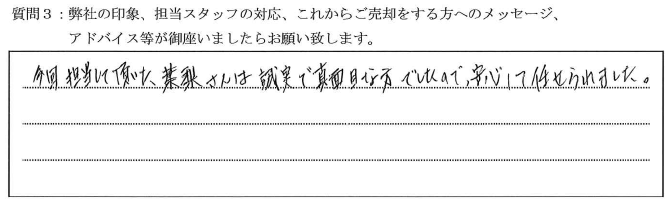 質問３：弊社の印象、担当スタッフの対応、これからご売却をする方へのメッセージ、
アドバイス等が御座いましたらお願い致します。
今回担当して頂いた さんは誠実で真面目な方でしたので、安心して任せられました。